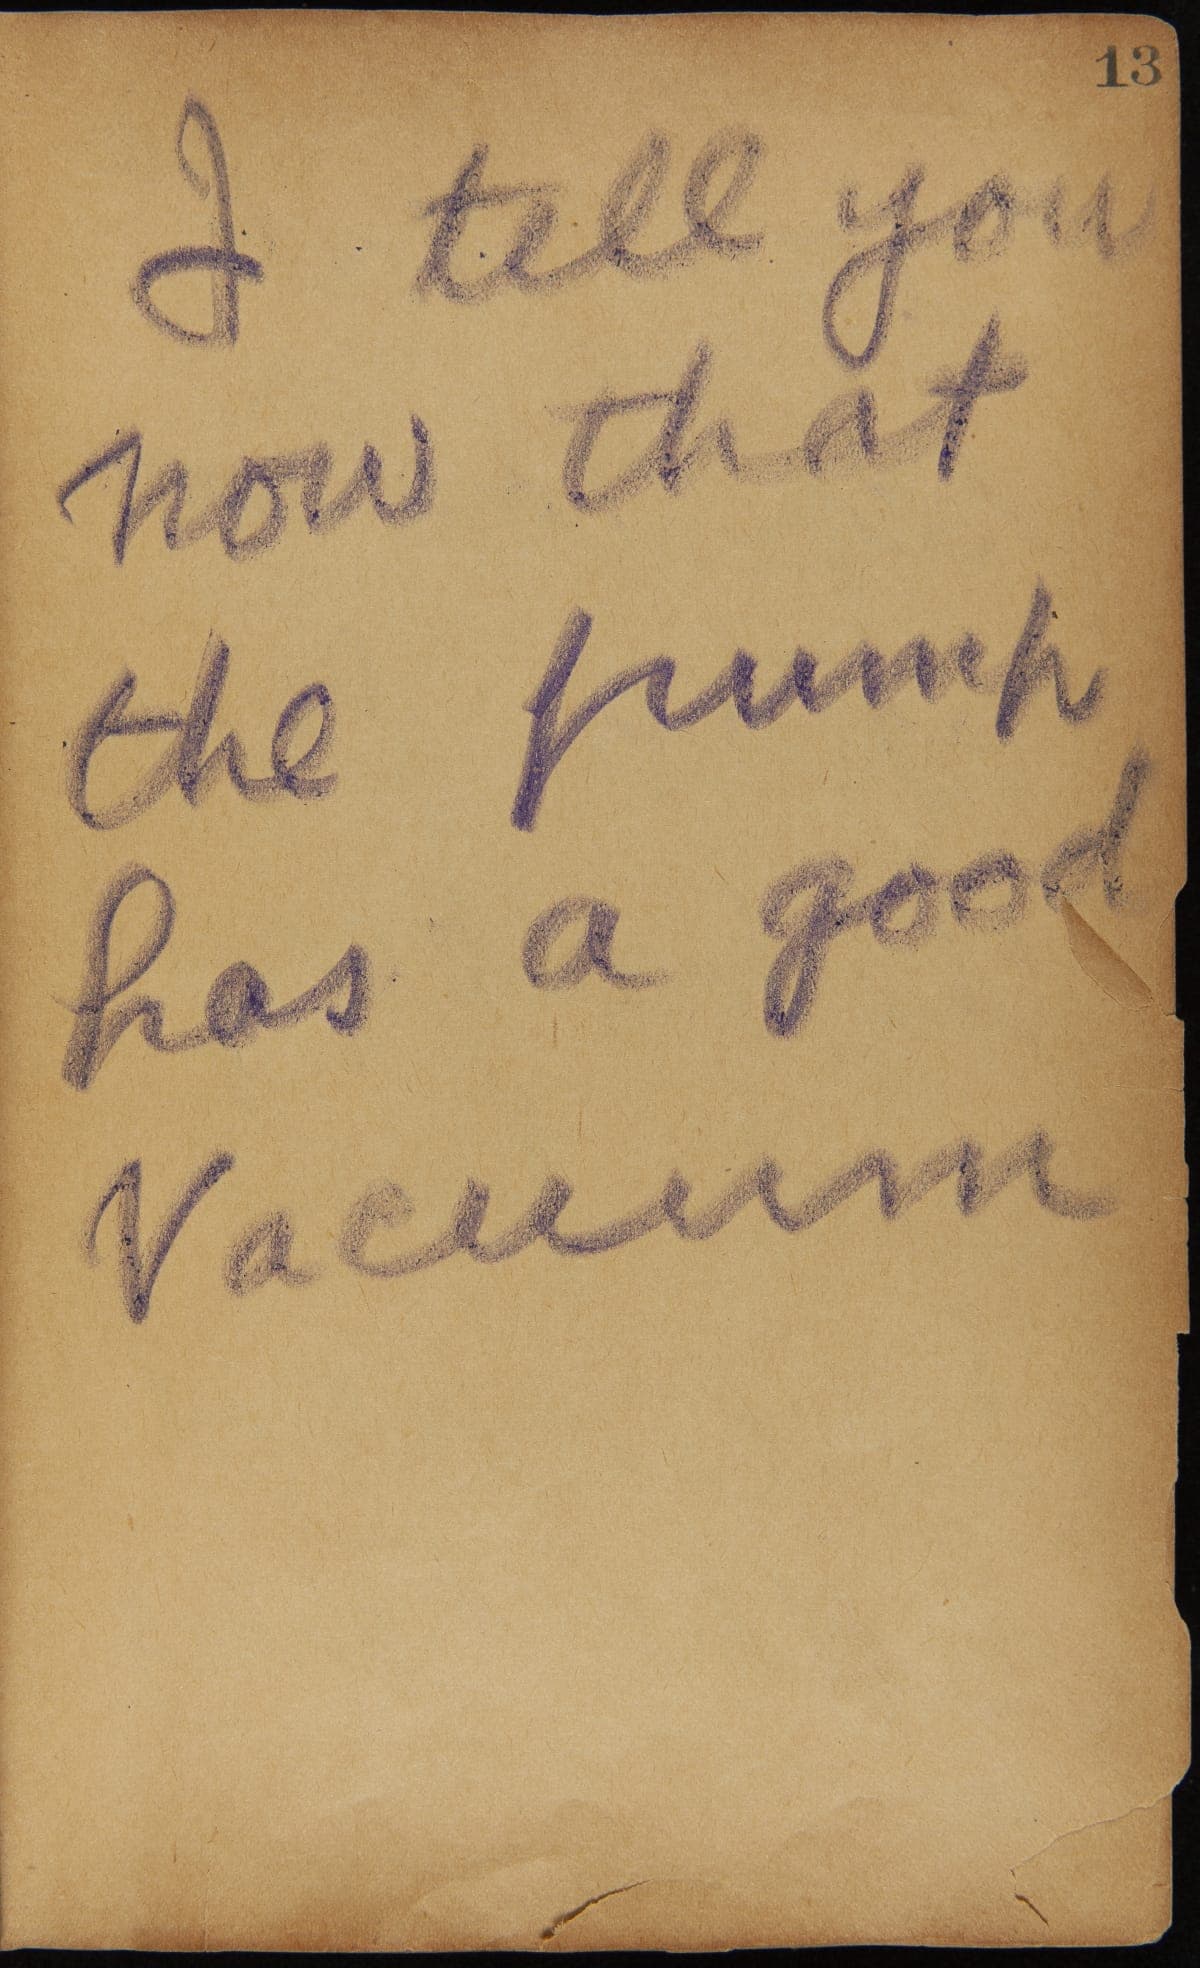 13
I tell you
now that
the pump
has a good
Vacuum